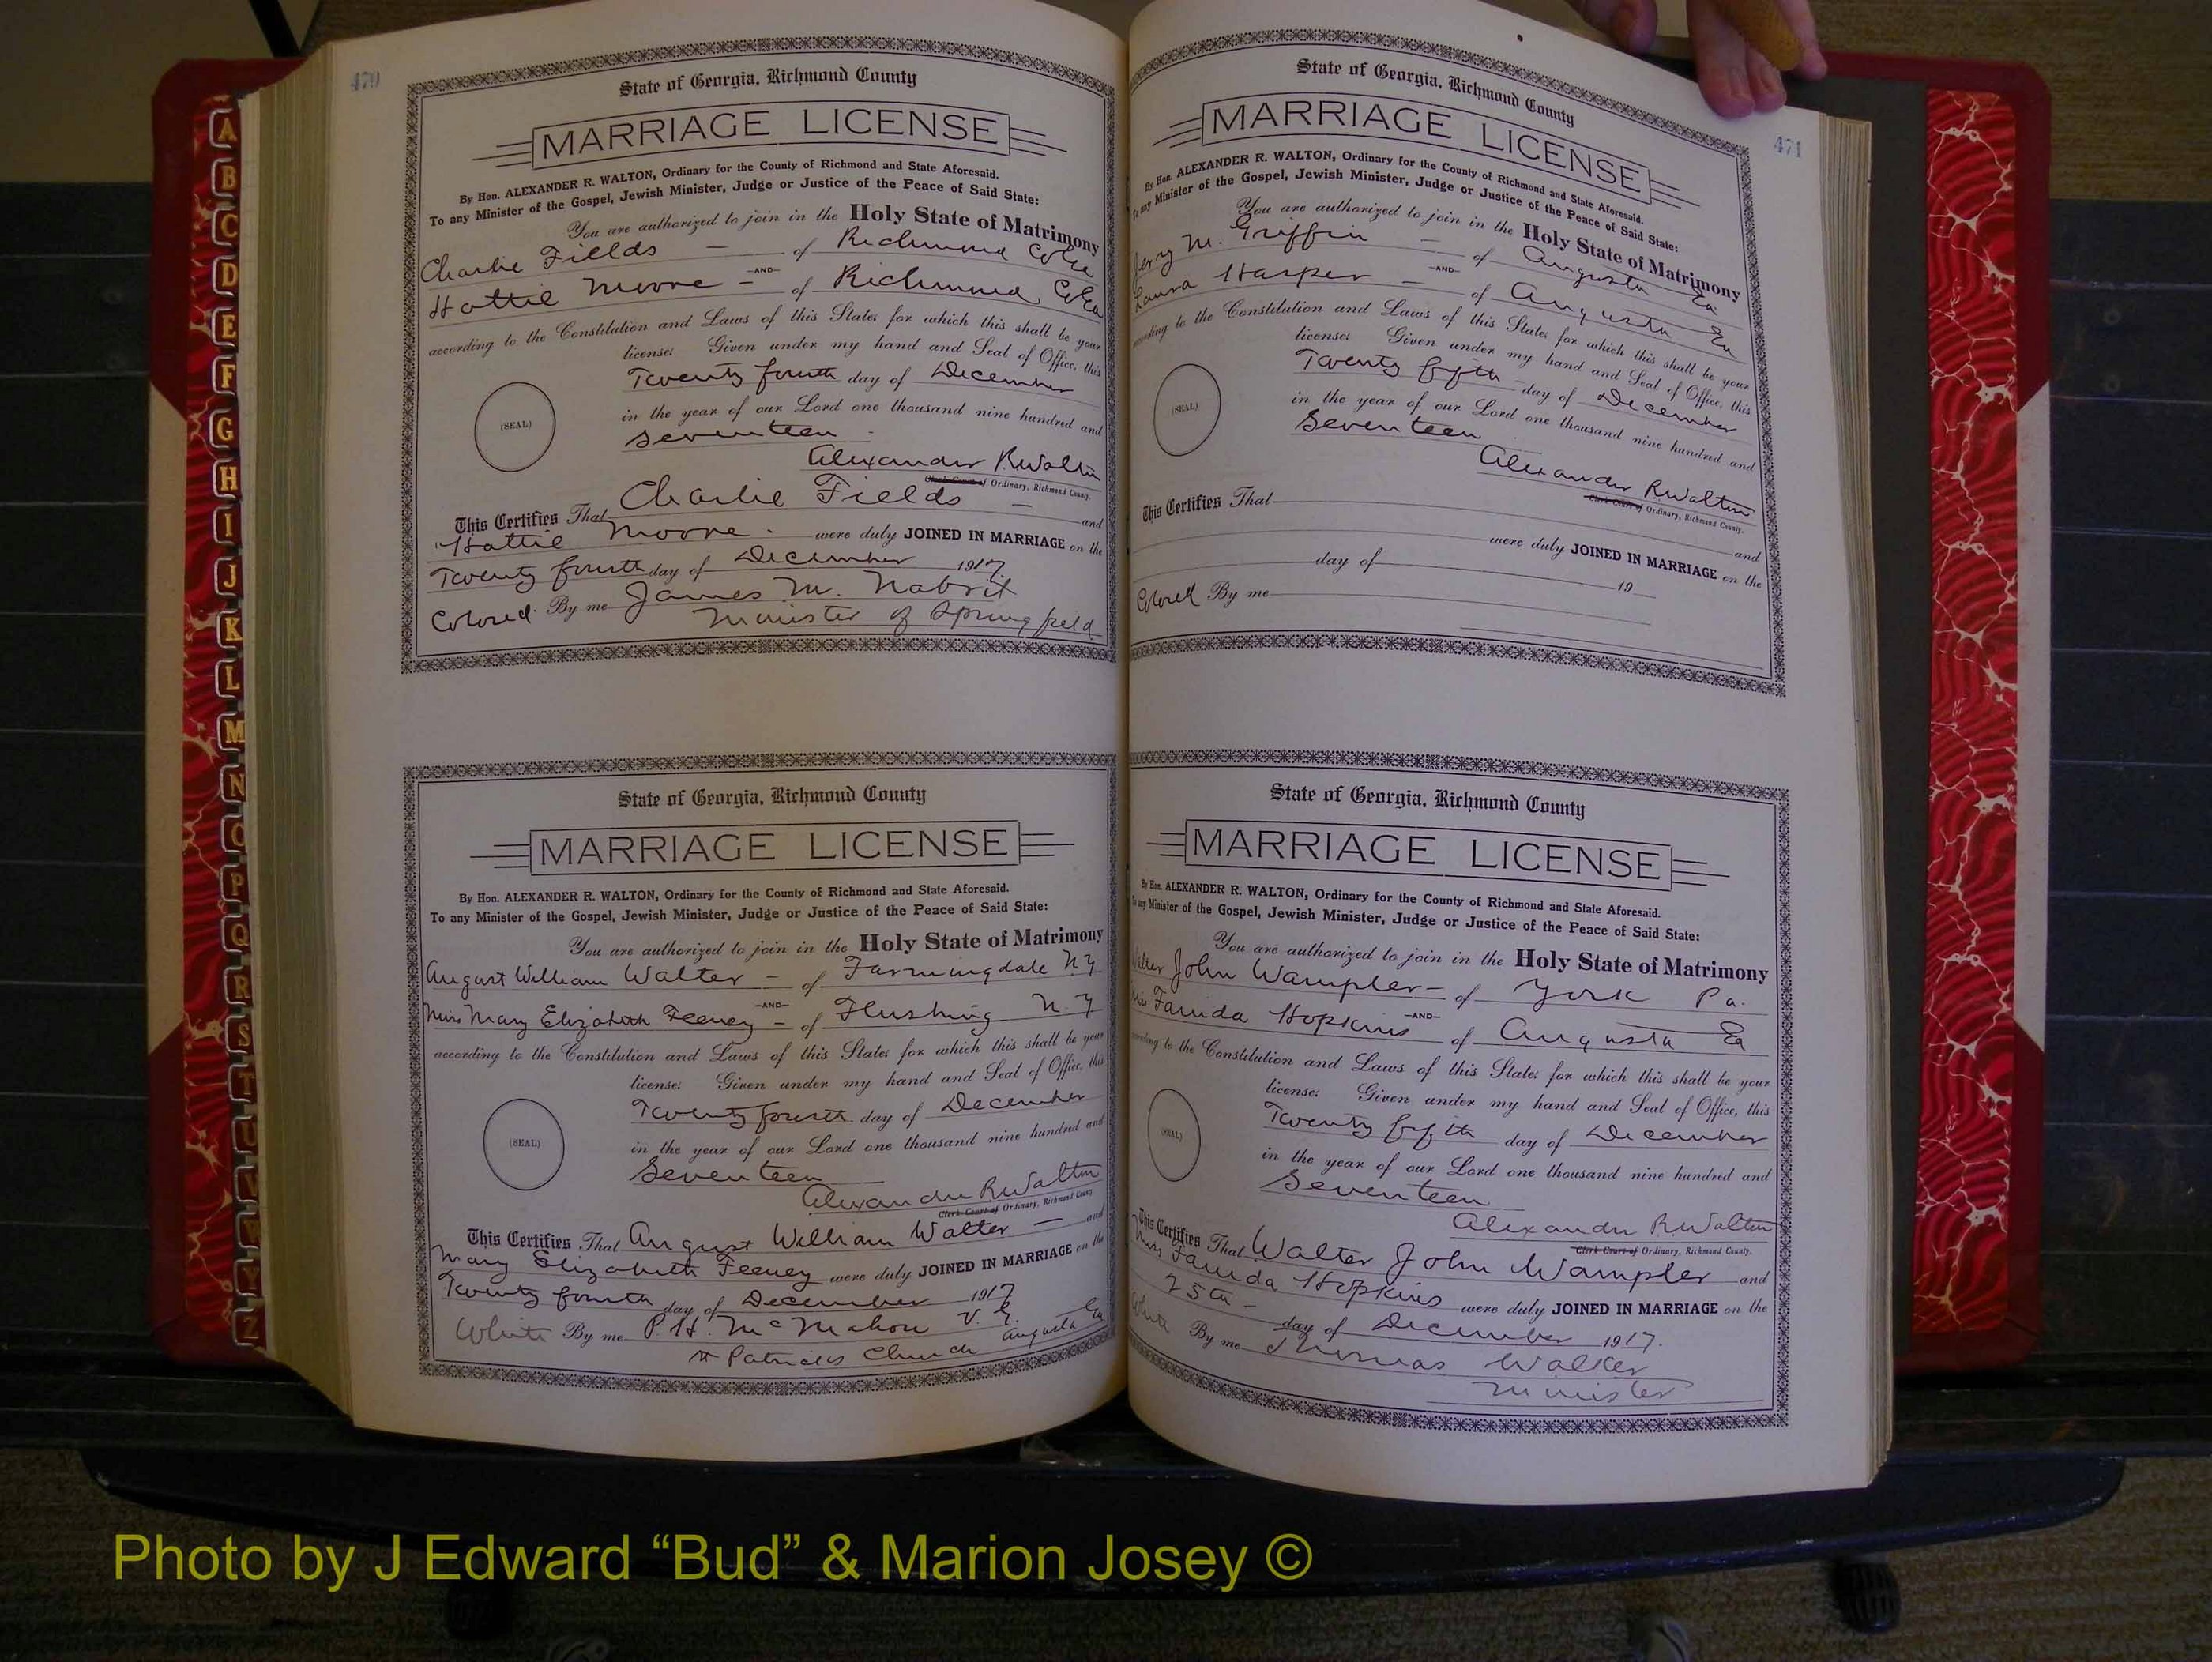 470
State of Georgia, Richmond County
MARRIAGE LICENSE
By Hon. ALEXANDER R. WALTON, Ordinary for the County of Richmond and State Aforesaid.
To any Minister of the Gospel, Jewish Minister, Judge or Justice of the Peace of Said State:
You are authorized to join in the Holy State of Matrimony
Charlie Fields — of Richmond Co Ga
-AND-
Hattie Moore — of Richmond Co Ga
according to the Constitution and Laws of this State; for which this shall be your
license: Given under my hand and Seal of Office, this
Twenty fourth day of December
in the year of our Lord one thousand nine hundred and
(SEAL)
Seventeen
Alexander R Walton
Clerk Court of Ordinary, Richmond County.
This Certifies That Charlie Fields — and
Hattie Moore were duly JOINED IN MARRIAGE on the
Twenty fourth day of December 1917
Colored By me James M. Nabrit
Minister of Springfield
State of Georgia, Richmond County
MARRIAGE LICENSE
By Hon. ALEXANDER R. WALTON, Ordinary for the County of Richmond and State Aforesaid.
To any Minister of the Gospel, Jewish Minister, Judge or Justice of the Peace of Said State:
You are authorized to join in the Holy State of Matrimony
August William Walter — of Farmingdale N.Y
-AND-
Miss Mary Elizabeth Feeney — of Flushing N.Y
according to the Constitution and Laws of this State; for which this shall be your
license: Given under my hand and Seal of Office, this
Twenty fourth day of December
(SEAL)
in the year of our Lord one thousand nine hundred and
Seventeen
Alexander R Walton
Clerk Court of Ordinary, Richmond County
This Certifies That August William Walter — and
Mary Elizabeth Feeney were duly JOINED IN MARRIAGE on the
Twenty fourth day of December 1917
White By me P. H. McMahon V. G.
St Patricks Church Augusta Ga
471
State of Georgia, Richmond County
MARRIAGE LICENSE
By Hon. ALEXANDER R. WALTON, Ordinary for the County of Richmond and State Aforesaid.
To any Minister of the Gospel, Jewish Minister, Judge or Justice of the Peace of Said State:
You are authorized to join in the Holy State of Matrimony
Jerry M. Griffin — of Augusta Ga
-AND-
Laura Harper — of Augusta Ga
according to the Constitution and Laws of this State; for which this shall be your
license: Given under my hand and Seal of Office, this
Twenty fifth day of December
in the year of our Lord one thousand nine hundred and
(SEAL)
Seventeen
Alexander R Walton
Clerk Court of Ordinary, Richmond County.
This Certifies That and
were duly JOINED IN MARRIAGE on the
day of 19
Colored By me
State of Georgia, Richmond County
MARRIAGE LICENSE
By Hon. ALEXANDER R. WALTON, Ordinary for the County of Richmond and State Aforesaid.
To any Minister of the Gospel, Jewish Minister, Judge or Justice of the Peace of Said State:
You are authorized to join in the Holy State of Matrimony
Walter John Wampler — of York Pa.
-AND-
Miss Farida Hopkins of Augusta Ga
according to the Constitution and Laws of this State; for which this shall be your
license: Given under my hand and Seal of Office, this
Twenty fifth day of December
(SEAL)
in the year of our Lord one thousand nine hundred and
Seventeen
Alexander R Walton
Clerk Court of Ordinary, Richmond County.
This Certifies That Walter John Wampler and
Miss Farida Hopkins were duly JOINED IN MARRIAGE on the
25th — day of December 1917.
White By me Thomas Walker
Minister
A
B
C
D
E
F
G
H
I
J
K
L
M
N
O
P
Q
R
S
T
U
V
W
Y
Z
Photo by J Edward “Bud” & Marion Josey ©